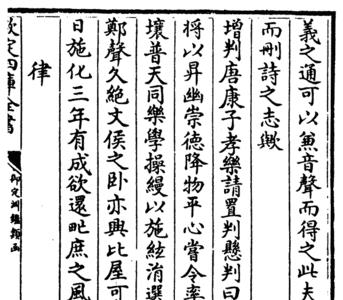 義之通可以兼音聲而得之此夫
而刪詩之志歟
增判唐康子孝樂請置判懸判曰
將以昇幽崇德降物平心當令率
壤普天同樂學操縵以施絃涓選
鄭聲久絶文侯之卧亦興比屋可
日施化三年有成欲還甿庶之風
律
欽定四庫全書
御定淵鑑類函